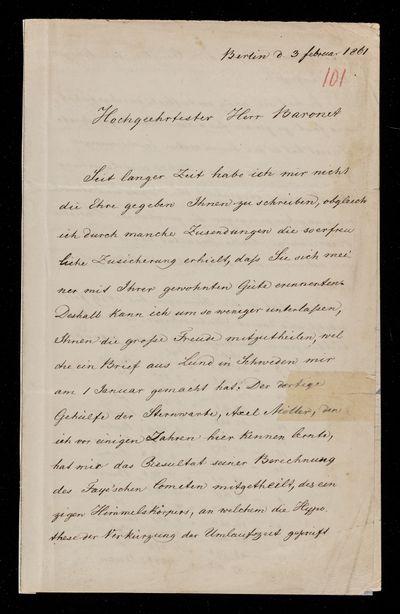 Berlin d 3 februar 1861
101
Hochgeehrtester Herr Baronet
Seit langer Zeit habe ich mir nicht
die Ehre gegeben Ihnen zu schreiben, obgleich
ich durch manche Zusendungen die so erfreu
liche Zusicherung erhielt, daß Sie sich mei
ner mit Ihrer gewohnten Güte erinnerten.
Deshalb kann ich um so weniger unterlaßen,
Ihnen die große Freude mitzutheilen, wel
che ein Brief aus Lund in Schweden mir
am 1 Januar gemacht hat. Der dortige
Gehülfe der Sternwarte, Axel Möller, den
ich vor einigen Jahren hier kennen lernte,
hat mir das Resultat seiner Berechnung
des Faye'schen Cometen mitgetheilt, des ein
zigen Himmelskörpers, an welchem die Hypo
these der Verkürzung der Umlaufszeit geprüft